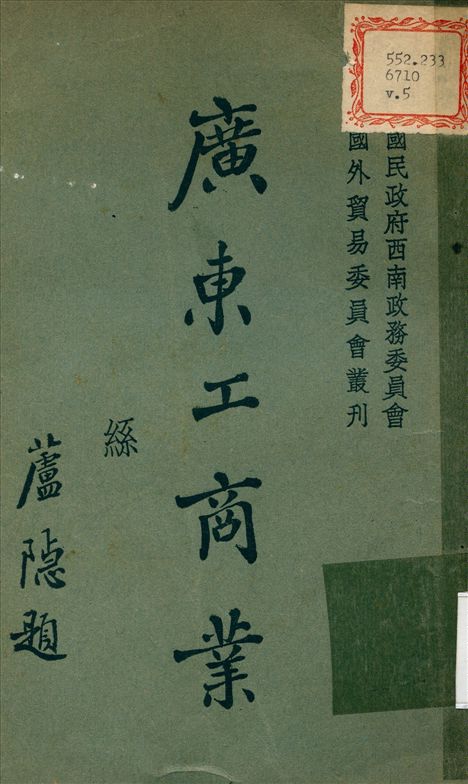 552.233
6710
v.5
國民政府西南政務委員會
國外貿易委員會叢刊
廣東工商業
絲
蘆隱題